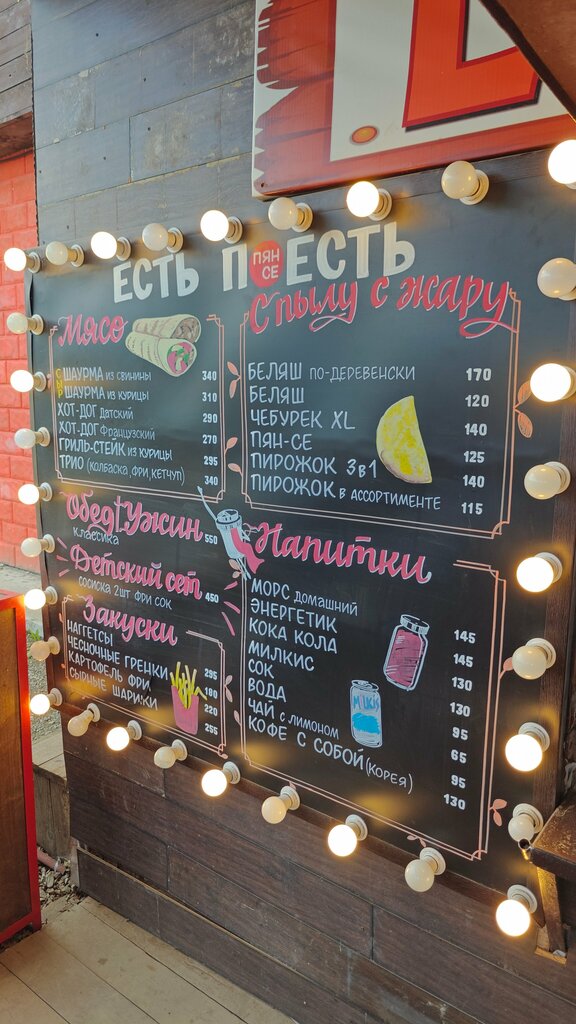 ЕСТЬ ПОЕСТЬ
ПЯН
СЕ
Мясо
СЫР
ШАУРМА из свинины 340
ШАУРМА из курицы 310
ХОТ-ДОГ датский 290
ХОТ-ДОГ Французский 270
ГРИЛЬ-СТЕЙК из курицы 295
ТРИО (колбаска, фри, кетчуп) 340
С пылу с жару
БЕЛЯШ по-деревенски 170
БЕЛЯШ 120
ЧЕБУРЕК XL 140
ПЯН-СЕ 125
ПИРОЖОК 3в1 140
ПИРОЖОК в ассортименте 115
Обед/Ужин 550
классика
Детский сет
сосиска 2шт фри сок 450
Закуски
НАГГЕТСЫ 295
ЧЕСНОЧНЫЕ ГРЕНКИ 190
КАРТОФЕЛЬ ФРИ 220
СЫРНЫЕ ШАРИКИ 255
Напитки
МОРС домашний 145
ЭНЕРГЕТИК 145
КОКА КОЛА 130
МИЛКИС 130
СОК 95
ВОДА 65
ЧАЙ с лимоном 95
КОФЕ С СОБОЙ (корея) 130
MILKIS